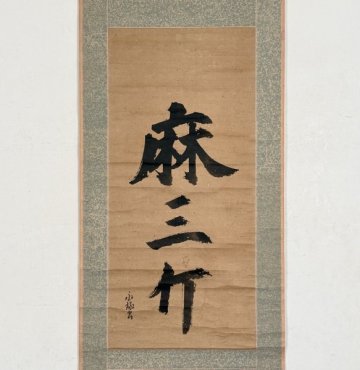 麻三斤